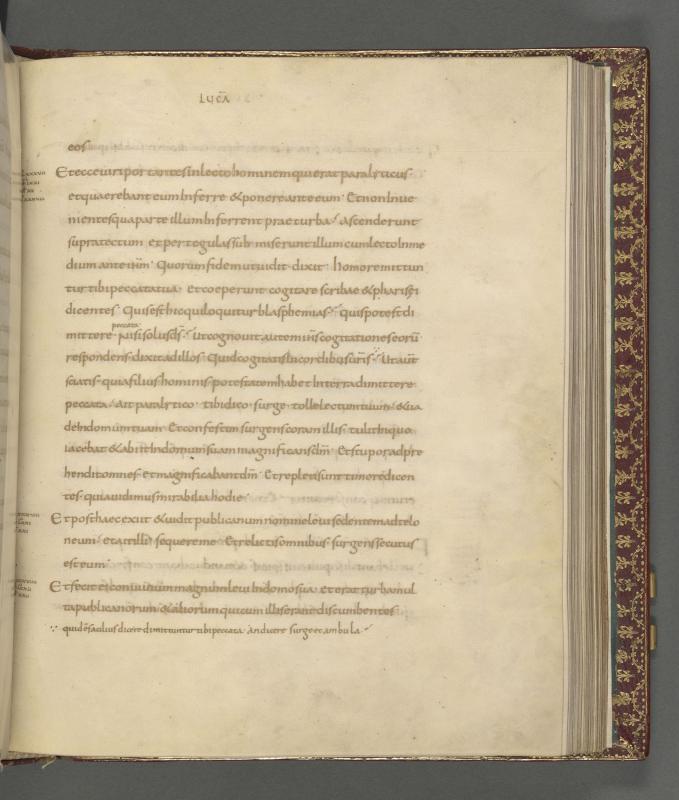 LUCĀ
eos
Et ecce viri portantes in lecto hominem qui erat paralyticus.
et quaerebant eum inferre & ponere ante eum. Et non inve
nientes qua parte illum inferrent prae turba. ascenderunt
supra tectum et per tegulas sub miserunt illum cum lecto in me
dium ante ihm. Quorum fidem ut vidit dixit. homo remittun
tur tibi peccata tua. Et coeperunt cogitare scribae & pharisęi
dicentes. Quis est hic qui loquitur blasphemias. Quis potest di
peccata
mittere nisi solus ds. Ut cognovit autem ihs cogitationes eorū
respondens dixit ad illos. Quid cogitatis in cordibus uris. Ut aut
sciatis quia filius hominis potestatem habet in terra dimittere
peccata. Ait paralytico. tibi dico surge. tolle lectum tuum. & va
de in domum tuam. Et confestim surgens coram illis. tulit in quo
iacebat & abiit in domum suam magnificans dm. Et stupor adpre
hendit omnes. et magnificabant dm. Et repleti sunt timore dicen
tes. quia vidimus mirabilia hodie.
Et post haec exiit & vidit publicanum nomine levi sedentem ad telo
neum. et ait illi sequere me. Et relictis omnibus. surgens secutus
est eum.
Et fecit ei convivium magnum levi in domo sua. Et erat turba mul
ta publicanorum & aliorum qui cum illis erant discumbentes.
quid ē facilius dicere dimittuntur tibi peccata. an dicere surge et ambula